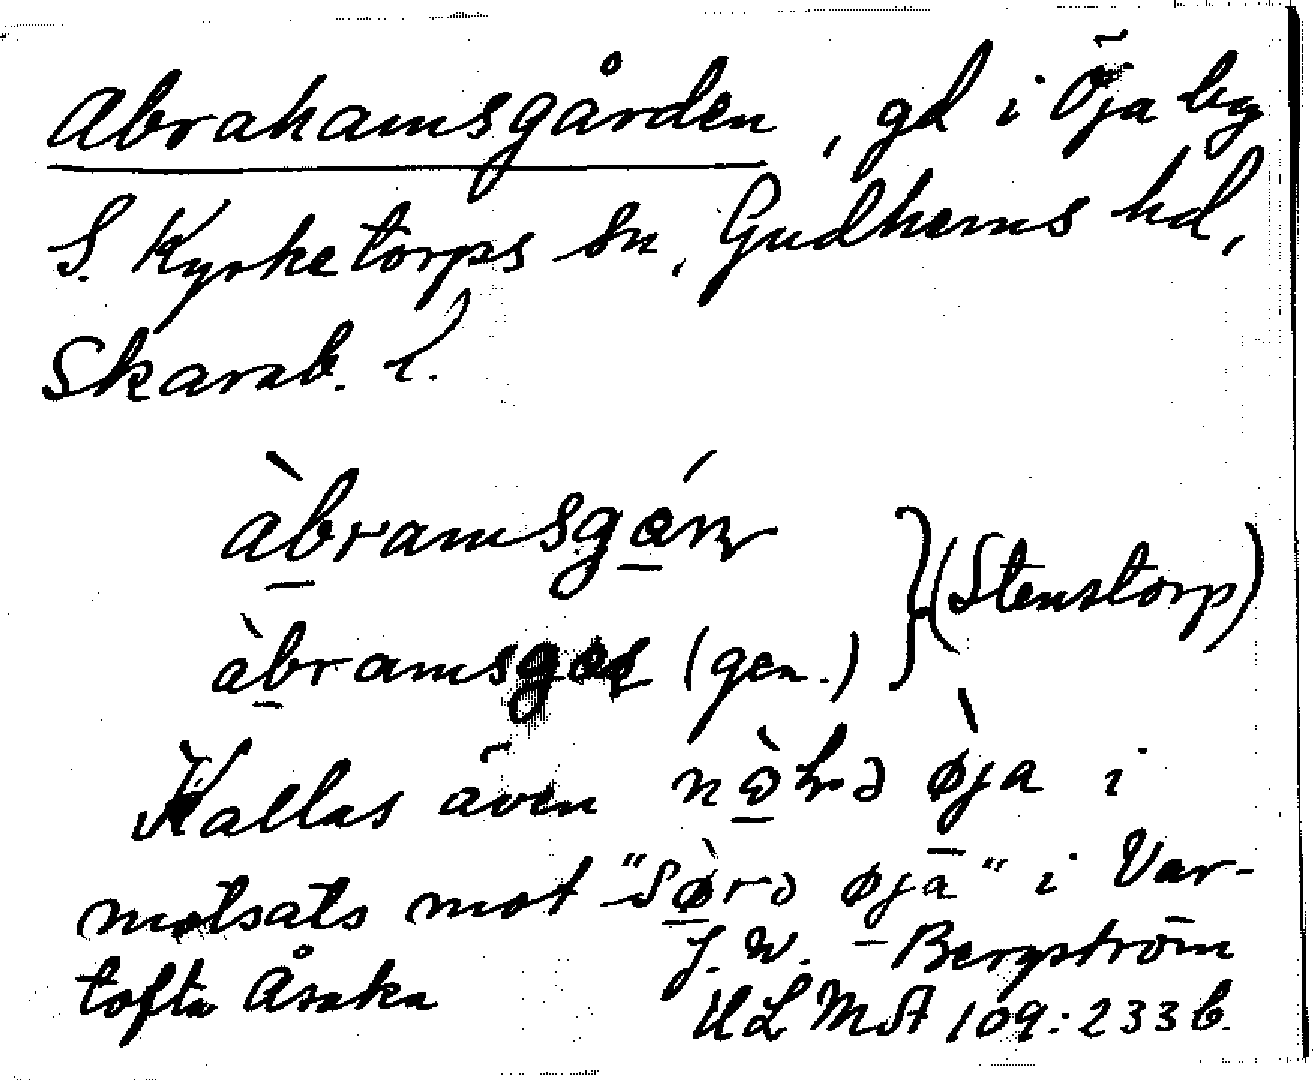 Abrahamsgården, gd i Öja by
S. Kyrketorps sn, Gudhems hd,
Skarab. l.
àbramsgǿn
àbramsgøs (gen.) } (Stenstorp)
Kallas även nòhrə øja i
motsats mot "Sørə øja" i Var-
tofta Åsaka J. W. Bergström
ULMA 109:233 b.